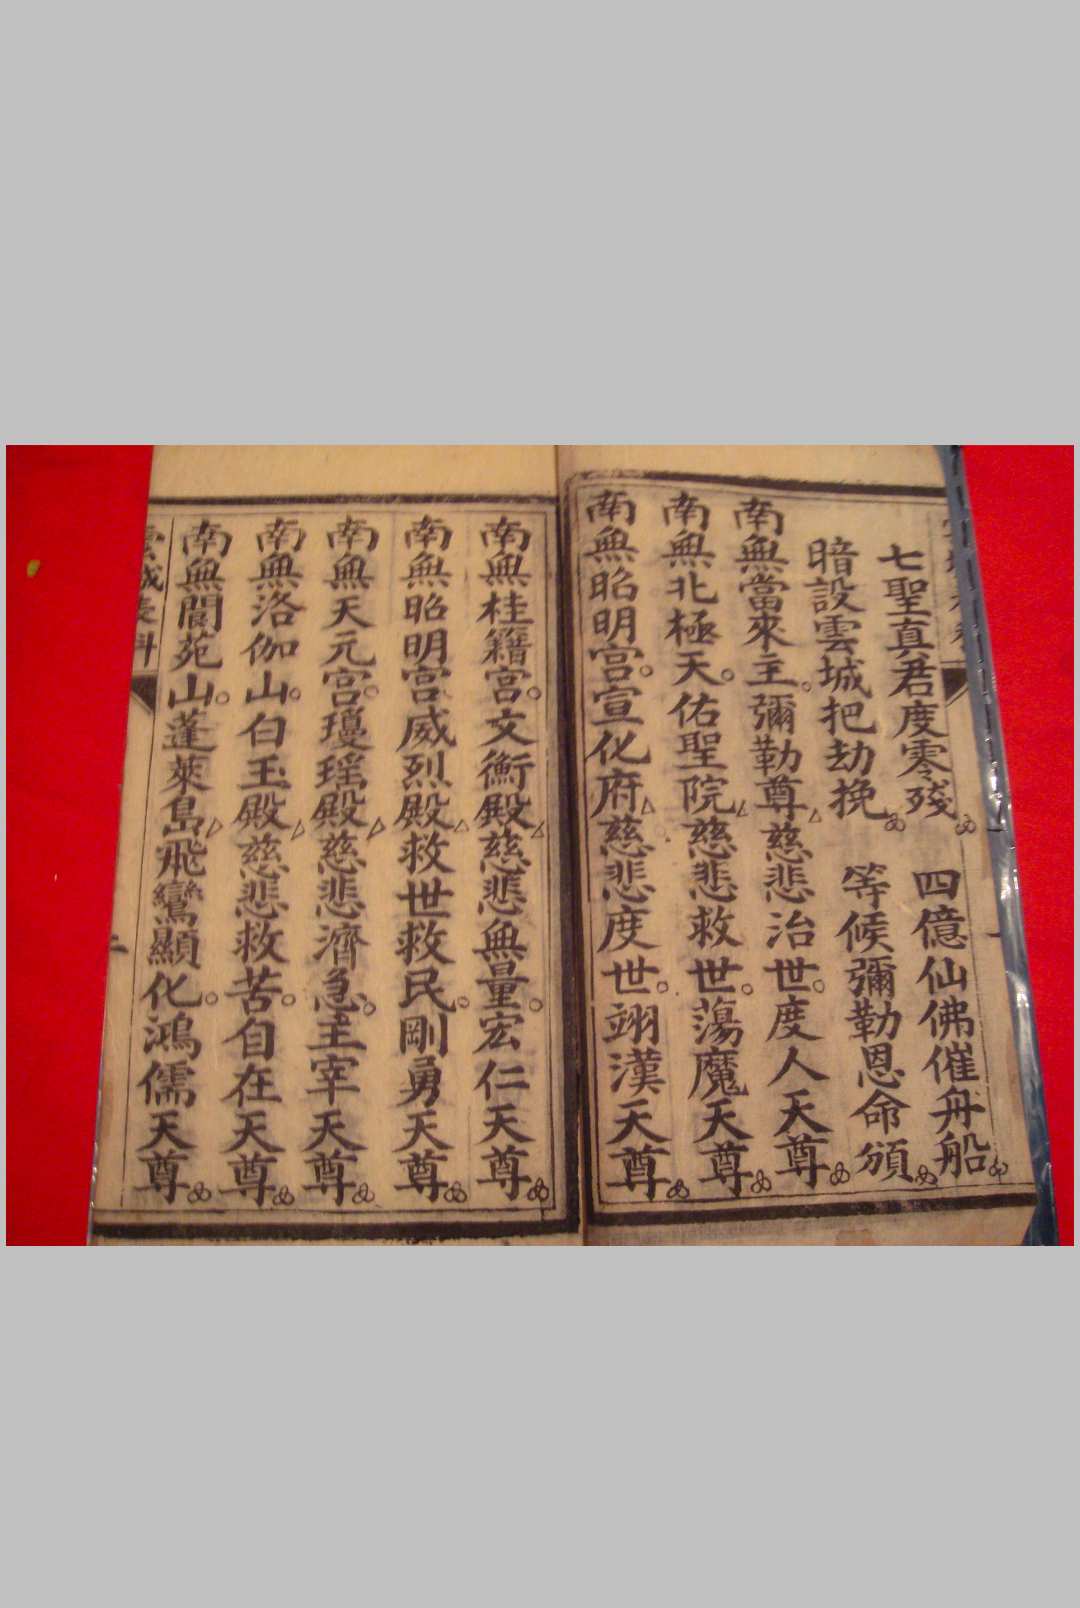 七聖真君度零殘 四億仙佛催舟船
暗設雲城把劫挽 等候彌勒恩命頒
南無當來主彌勒尊慈悲治世度人天尊
南無北極天佑聖院慈悲救世蕩魔天尊
南無昭明宮宣化府慈悲度世翊漢天尊
南無桂籍宮文衡殿慈悲無量宏仁天尊
南無昭明宮威烈殿救世救民剛勇天尊
南無天元宮瓊瑤殿慈悲濟急主宰天尊
南無洛伽山白玉殿慈悲救苦自在天尊
南無閬苑山蓬萊島飛鸞顯化鴻儒天尊